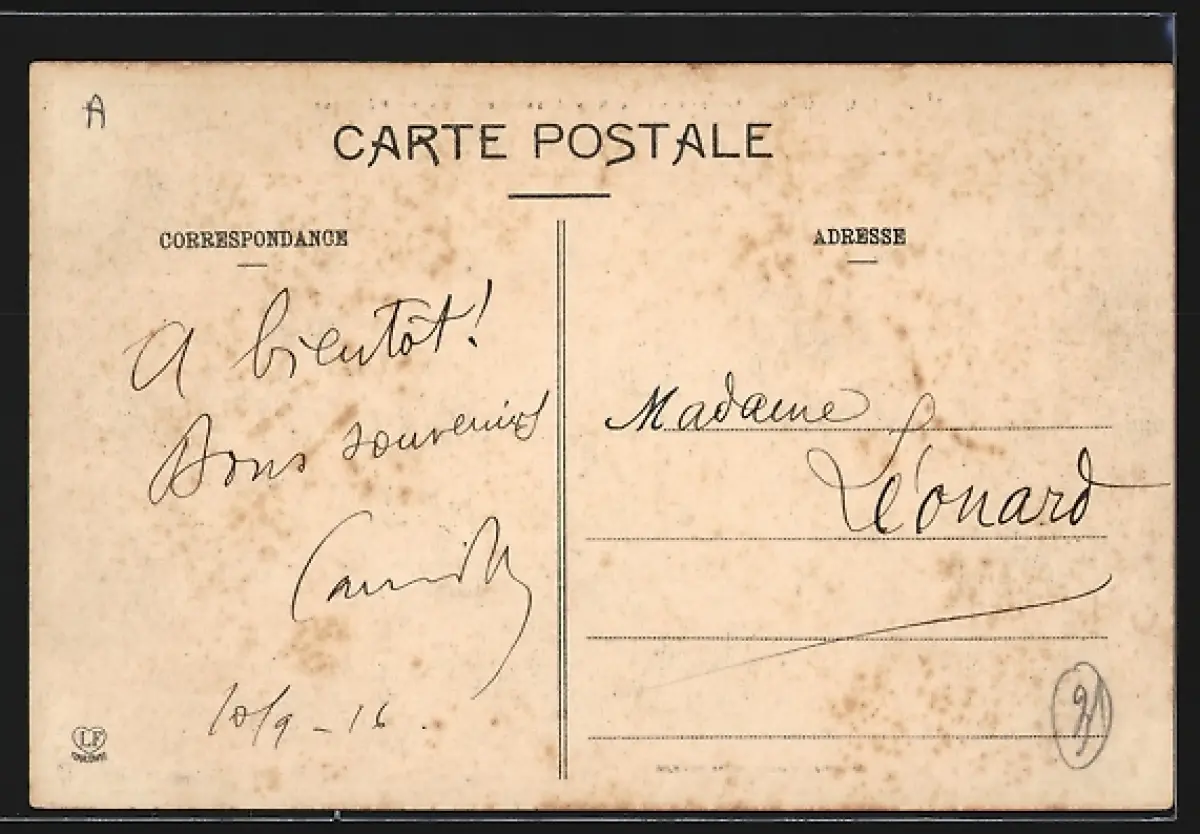 A
CARTE POSTALE
CORRESPONDANCE
ADRESSE
A bientôt!
Bons souvenirs
Camille
10/9-16.
Madame
Léonard
LF